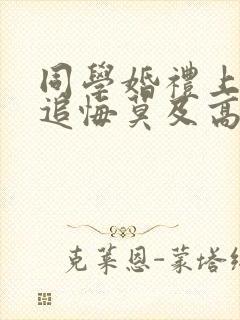 同學婚禮上
追悔莫及高
克萊恩-蒙塔